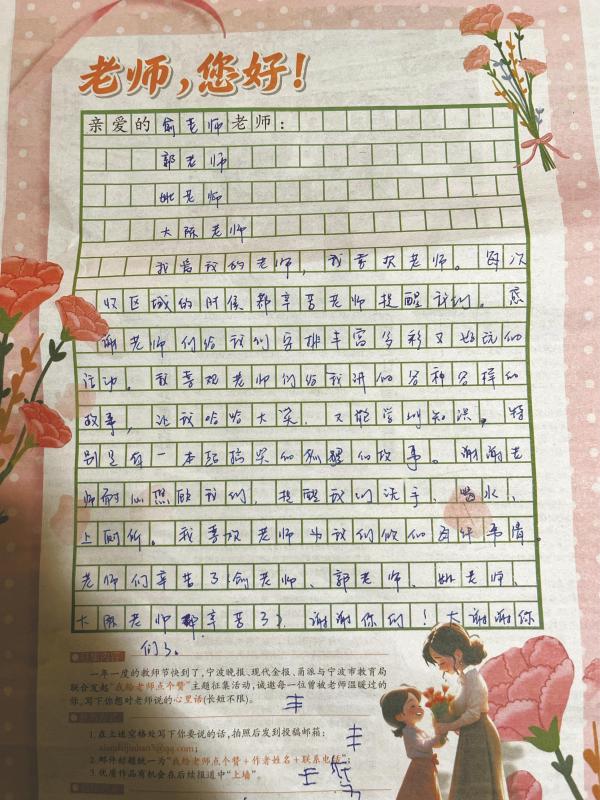 老师，您好！
亲爱的俞老师老师：
郭老师
姚老师
大陈老师
我爱我的老师，我喜欢老师。每次
收区域的时候都辛苦老师提醒我们。感
谢老师们给我们安排丰富多彩又好玩的
活动。我喜欢老师们给我讲的各种各样的
故事，让我哈哈大笑，又能学到知识。特
别是有一本超搞笑的狐狸的故事。谢谢老
师耐心照顾我们，提醒我们洗手、喝水、
上厕所。我喜欢老师为我们做的每件事情。
老师们辛苦了！俞老师、郭老师、姚老师、
大陈老师都辛苦了！谢谢你们！大谢谢你
们了。
一年一度的教师节快到了，宁波晚报、现代金报、甬派与宁波市教育局
联合发起“我给老师点个赞”主题征集活动，诚邀每一位曾被老师温暖过的
你，写下你想对老师说的心里话（长短不限）。
1. 在上述空格处写下你要说的话，拍照后发到投稿邮箱：
2. 邮件标题统一为“我给老师点个赞 + 作者姓名 + 联系电话”；
3. 优质作品有机会在后续报道中“上墙”。